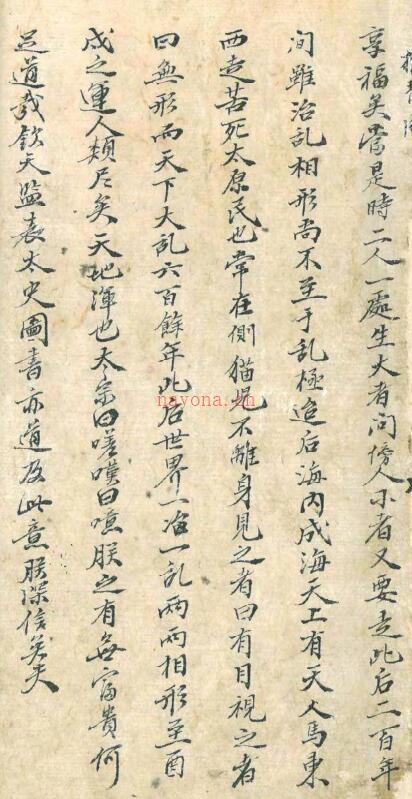 享福矣常是時二人一處生大者问傍人小者又要走此后二百年
洵雖治乱相形尚不至于乱極迨后海内成海天上有天人馬東
西走苦死太原民也常在側猫兒不離身見之者曰有目視之者
曰無形而天下大乱六百餘年此后世界一治一乱两两相形至酉
戍之運人類尽矣天地渾也太宗曰嗟嘆曰噫朕之有每富貴何
足道哉欽天监袁太史圖書亦道及此意朕深信矣夫
nayona.cn